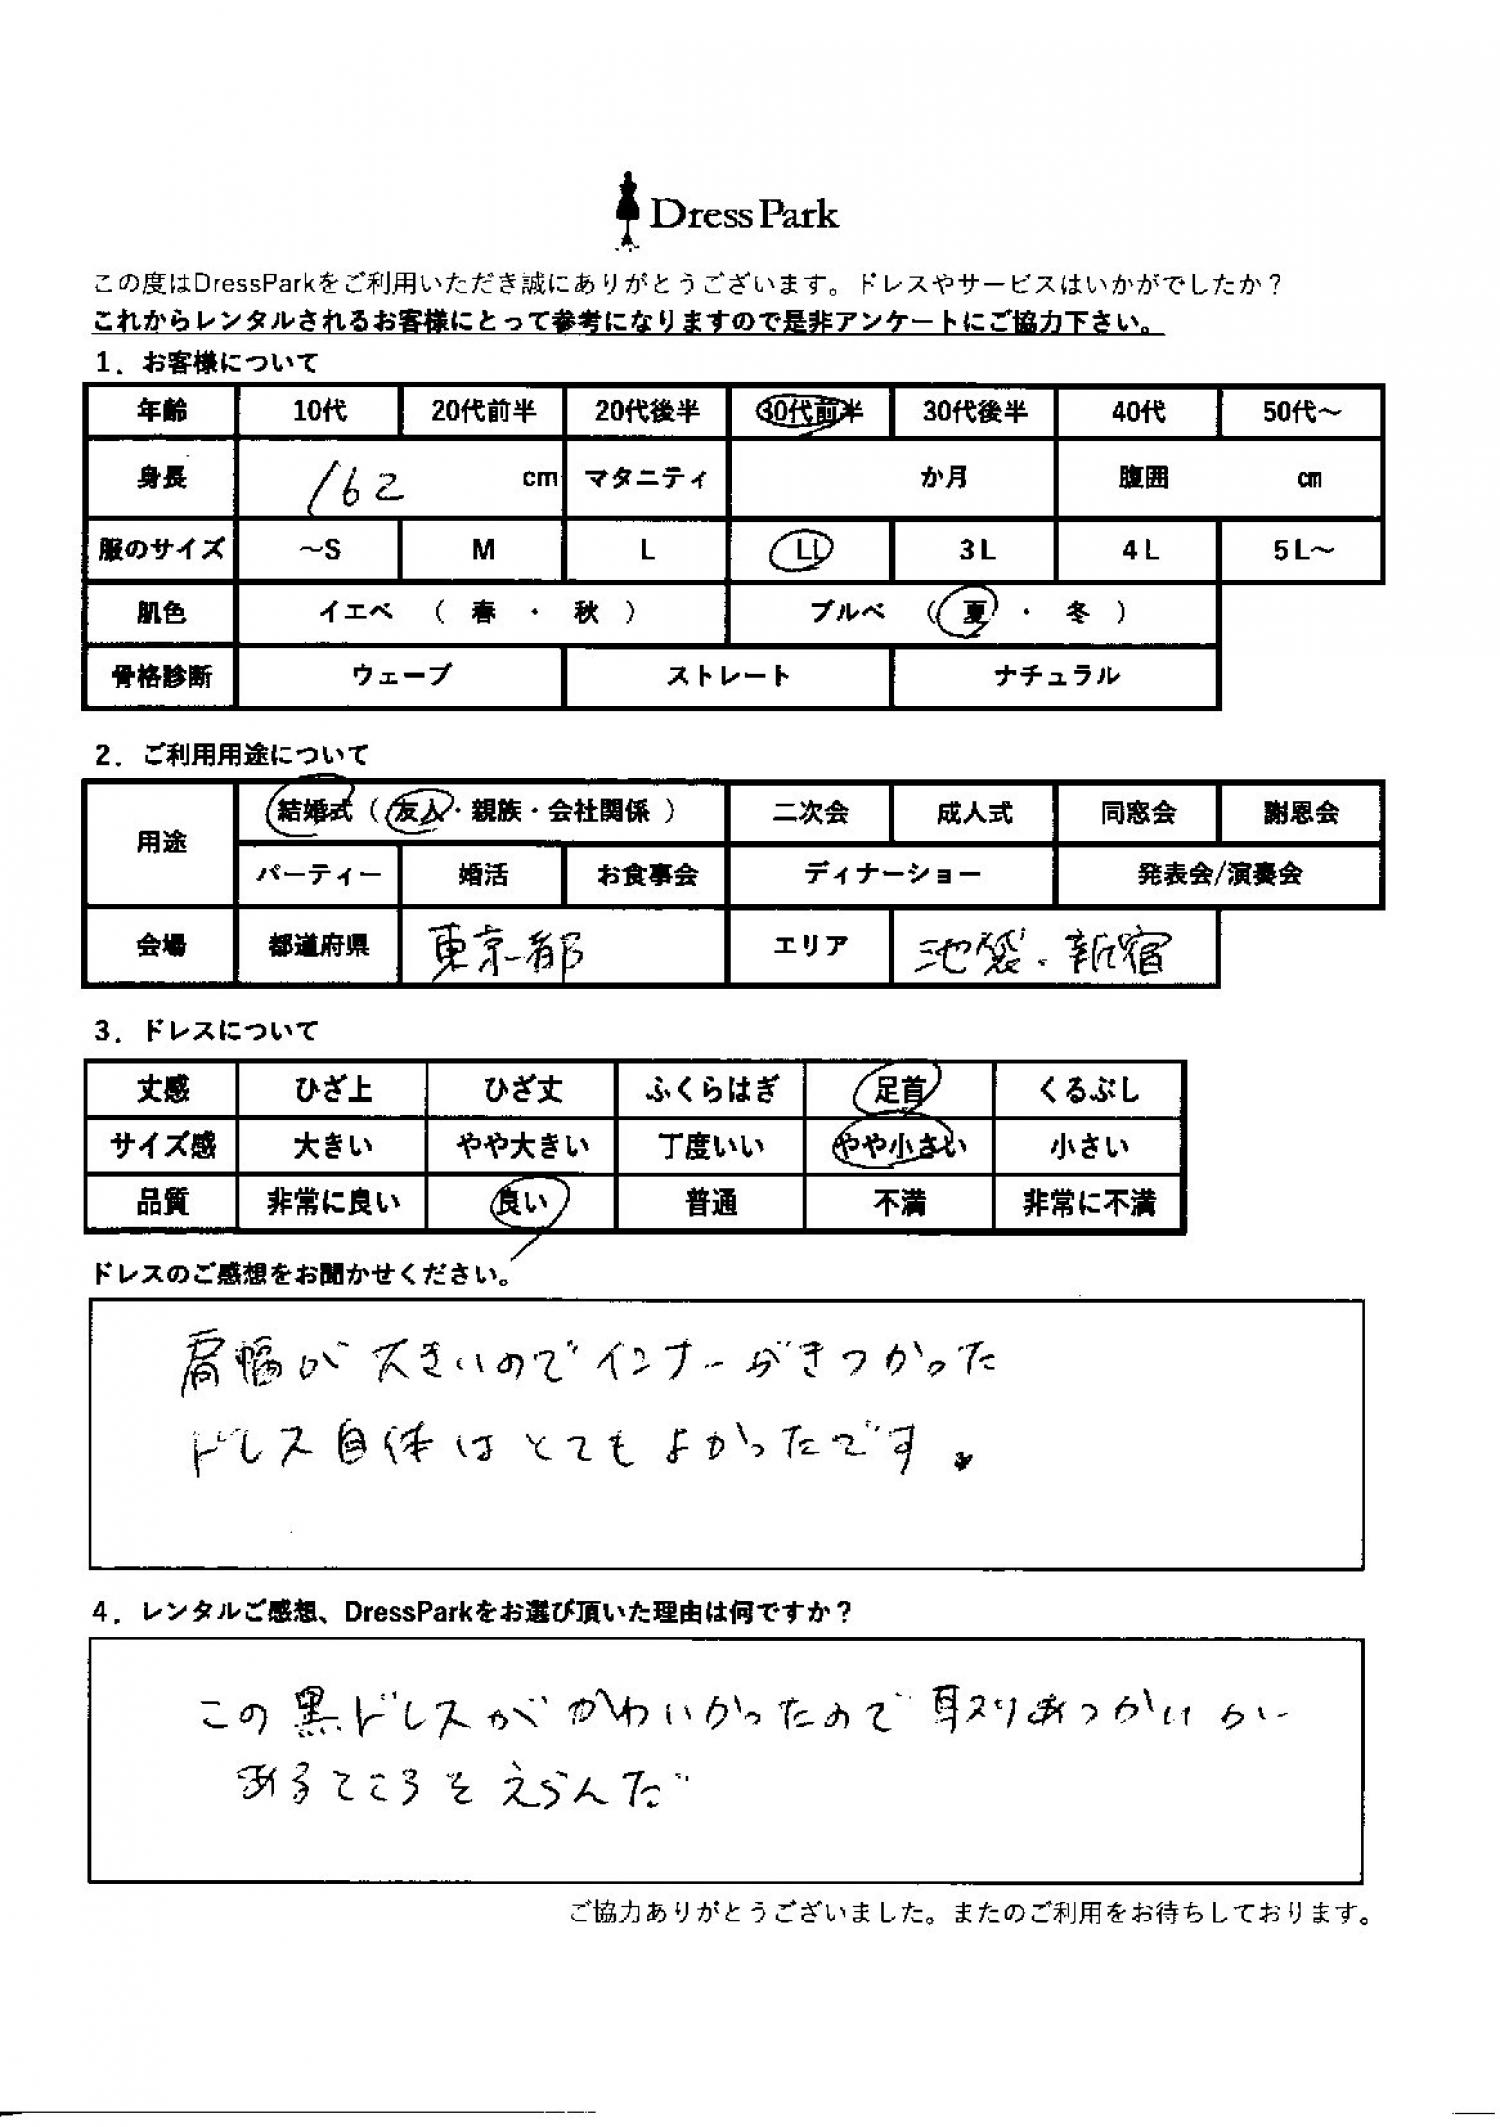 Dress Park
この度はDressParkをご利用いただき誠にありがとうございます。ドレスやサービスはいかがでしたか？
これからレンタルされるお客様にとって参考になりますので是非アンケートにご協力下さい。
1．お客様について
年齢 10代 20代前半 20代後半 30代前半 30代後半 40代 50代～
身長 162 cm マタニティ か月 腹囲 cm
服のサイズ ～S M L LL 3L 4L 5L～
肌色 イエベ （ 春 ・ 秋 ） ブルベ （ 夏 ・ 冬 ）
骨格診断 ウェーブ ストレート ナチュラル
2．ご利用用途について
用途 結婚式（ 友人・親族・会社関係 ） 二次会 成人式 同窓会 謝恩会
パーティー 婚活 お食事会 ディナーショー 発表会/演奏会
会場 都道府県 東京都 エリア 池袋・新宿
3．ドレスについて
丈感 ひざ上 ひざ丈 ふくらはぎ 足首 くるぶし
サイズ感 大きい やや大きい 丁度いい やや小さい 小さい
品質 非常に良い 良い 普通 不満 非常に不満
ドレスのご感想をお聞かせください。
肩幅が大きいのでインナーがきつかった
ドレス自体はとてもよかったです。
4．レンタルご感想、DressParkをお選び頂いた理由は何ですか？
この黒ドレスがかわいかったので取りあつかいが
あるところをえらんだ
ご協力ありがとうございました。またのご利用をお待ちしております。